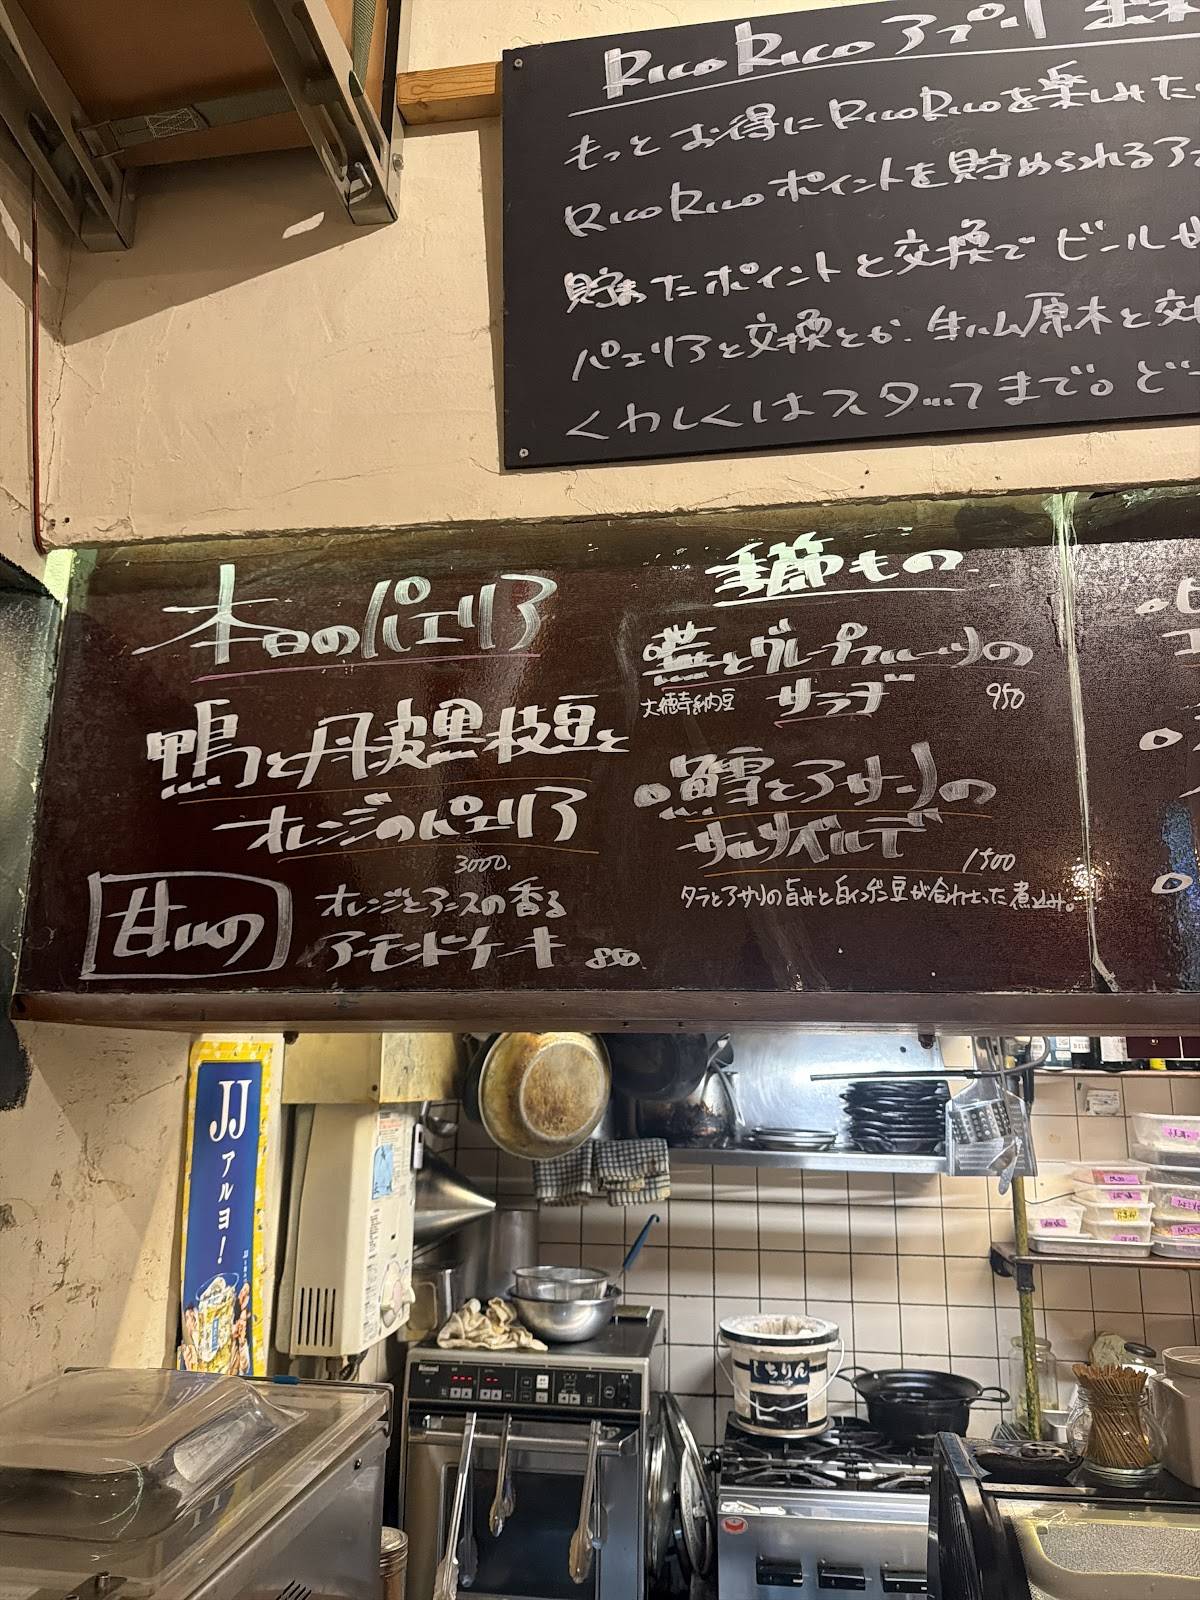 RICO RICO アプリ
もっとお得にRICORICOを楽しみたい
RICO RICOポイントを貯められるア
貯まったポイントと交換で ビール
パエリアと交換とか、生ハム原木と交
くわしくはスタッフまで。
本日のパエリア
鴨と丹波黒枝豆と
オレンジのパエリア
3000.
甘いの
オレンジとアニスの香る
アーモンドケーキ
季節もの
蕪とグレープフルーツの
大徳寺納豆 サラダ 950
鱈とアサリの
サルサベルデ
1500
タラとアサリの旨みと白インゲン豆が合わさった煮込み。
JJ
アルヨ!
Rinnai
しちりん